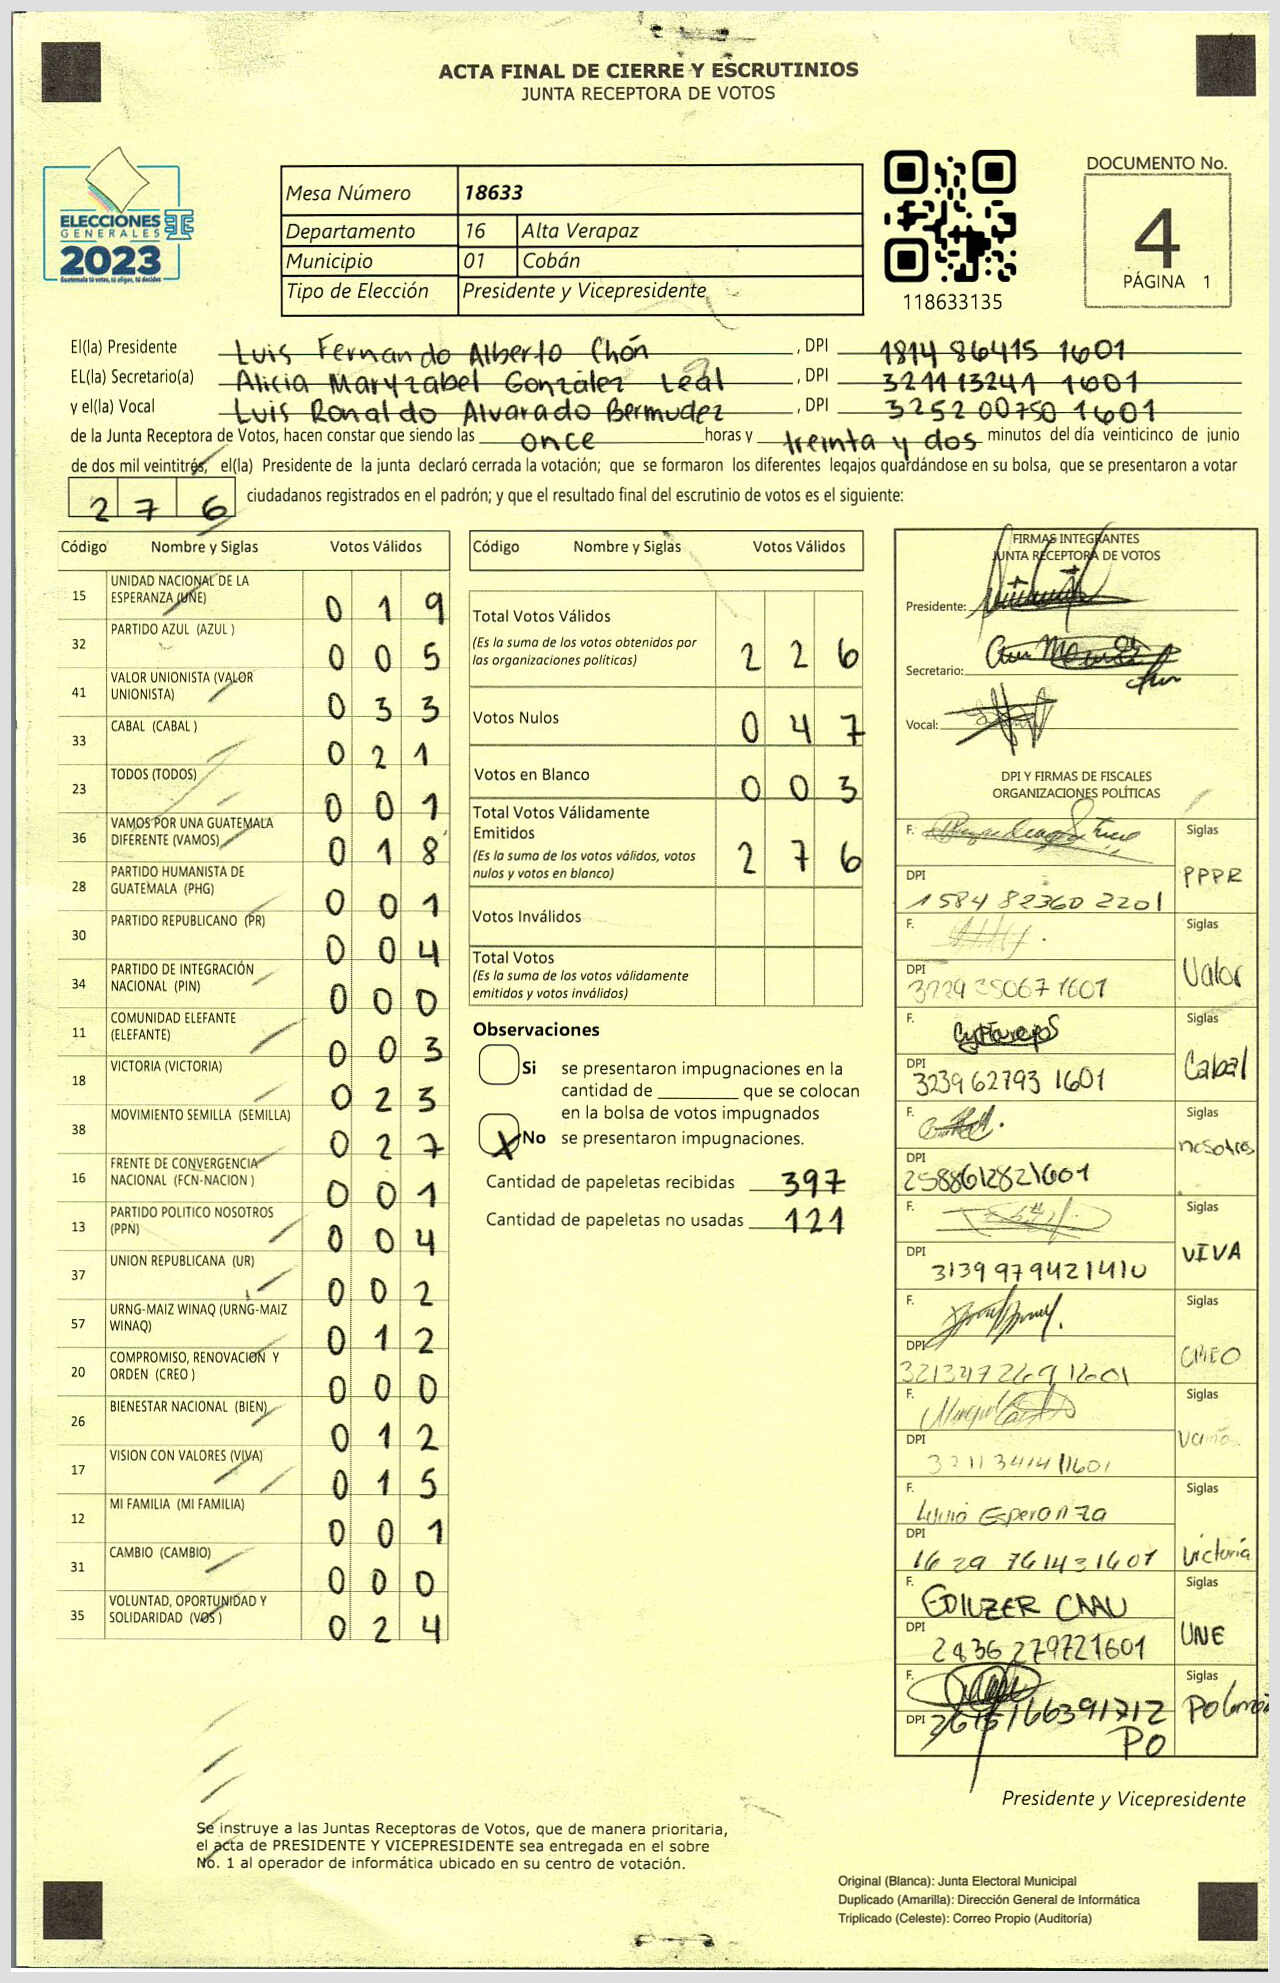 ACTA FINAL DE CIERRE Y ESCRUTINIOS
JUNTA RECEPTORA DE VOTOS
ELECCIONES
GENERALES
2023
Guatemala tú votas, tú eliges, tú decides
Mesa Número 18633
Departamento 16 Alta Verapaz
Municipio 01 Cobán
Tipo de Elección Presidente y Vicepresidente
118633135
DOCUMENTO No.
4
PÁGINA 1
El(la) Presidente Luis Fernando Alberto Chón , DPI 1814 86415 1601
EL(la) Secretario(a) Alicia Maryzabel González Leal , DPI 3211 13241 1601
y el(la) Vocal Luis Ronaldo Alvarado Bermudez , DPI 3252 00750 1601
de la Junta Receptora de Votos, hacen constar que siendo las once horas y treinta y dos minutos del día veinticinco de junio
de dos mil veintitrés, el(la) Presidente de la junta declaró cerrada la votación; que se formaron los diferentes legajos guardándose en su bolsa, que se presentaron a votar
276 ciudadanos registrados en el padrón; y que el resultado final del escrutinio de votos es el siguiente:
Código Nombre y Siglas Votos Válidos
15 UNIDAD NACIONAL DE LA ESPERANZA (UNE) 019
32 PARTIDO AZUL (AZUL ) 005
41 VALOR UNIONISTA (VALOR UNIONISTA) 033
33 CABAL (CABAL ) 021
23 TODOS (TODOS) 001
36 VAMOS POR UNA GUATEMALA DIFERENTE (VAMOS) 018
28 PARTIDO HUMANISTA DE GUATEMALA (PHG) 001
30 PARTIDO REPUBLICANO (PR) 004
34 PARTIDO DE INTEGRACIÓN NACIONAL (PIN) 000
11 COMUNIDAD ELEFANTE (ELEFANTE) 003
18 VICTORIA (VICTORIA) 023
38 MOVIMIENTO SEMILLA (SEMILLA) 027
16 FRENTE DE CONVERGENCIA NACIONAL (FCN-NACION ) 001
13 PARTIDO POLITICO NOSOTROS (PPN) 004
37 UNION REPUBLICANA (UR) 002
57 URNG-MAIZ WINAQ (URNG-MAIZ WINAQ) 012
20 COMPROMISO, RENOVACION Y ORDEN (CREO ) 000
26 BIENESTAR NACIONAL (BIEN) 012
17 VISION CON VALORES (VIVA) 015
12 MI FAMILIA (MI FAMILIA) 001
31 CAMBIO (CAMBIO) 000
35 VOLUNTAD, OPORTUNIDAD Y SOLIDARIDAD (VOS ) 024
Código Nombre y Siglas Votos Válidos
Total Votos Válidos
(Es la suma de los votos obtenidos por
las organizaciones políticas) 226
Votos Nulos 047
Votos en Blanco 003
Total Votos Válidamente
Emitidos
(Es la suma de los votos válidos, votos
nulos y votos en blanco) 276
Votos Inválidos
Total Votos
(Es la suma de los votos válidamente
emitidos y votos inválidos)
Observaciones
Si se presentaron impugnaciones en la
cantidad de ________ que se colocan
en la bolsa de votos impugnados
X No se presentaron impugnaciones.
Cantidad de papeletas recibidas 397
Cantidad de papeletas no usadas 121
FIRMAS INTEGRANTES
JUNTA RECEPTORA DE VOTOS
Presidente:
Secretario:
Vocal:
DPI Y FIRMAS DE FISCALES
ORGANIZACIONES POLÍTICAS
F. Siglas
DPI 1584 82360 2201 PPPR
F. Siglas
DPI Valor
F. Siglas
DPI 3239 62793 1601 Cabal
F. Siglas
DPI 2588612821601 nosotros
F. Siglas
DPI 3139 979421410 VIVA
F. Siglas
DPI 321347269 1601 CREO
F. Siglas
DPI 3211 341411601 Vamos
F. Esperanza Siglas
DPI 16 29 761431601 Victoria
F. EDIUZER CAAU Siglas
DPI 2836 279721601 UNE
F. Siglas
DPI
PO
Presidente y Vicepresidente
Se instruye a las Juntas Receptoras de Votos, que de manera prioritaria,
el acta de PRESIDENTE Y VICEPRESIDENTE sea entregada en el sobre
No. 1 al operador de informática ubicado en su centro de votación.
Original (Blanca): Junta Electoral Municipal
Duplicado (Amarilla): Dirección General de Informática
Triplicado (Celeste): Correo Propio (Auditoría)